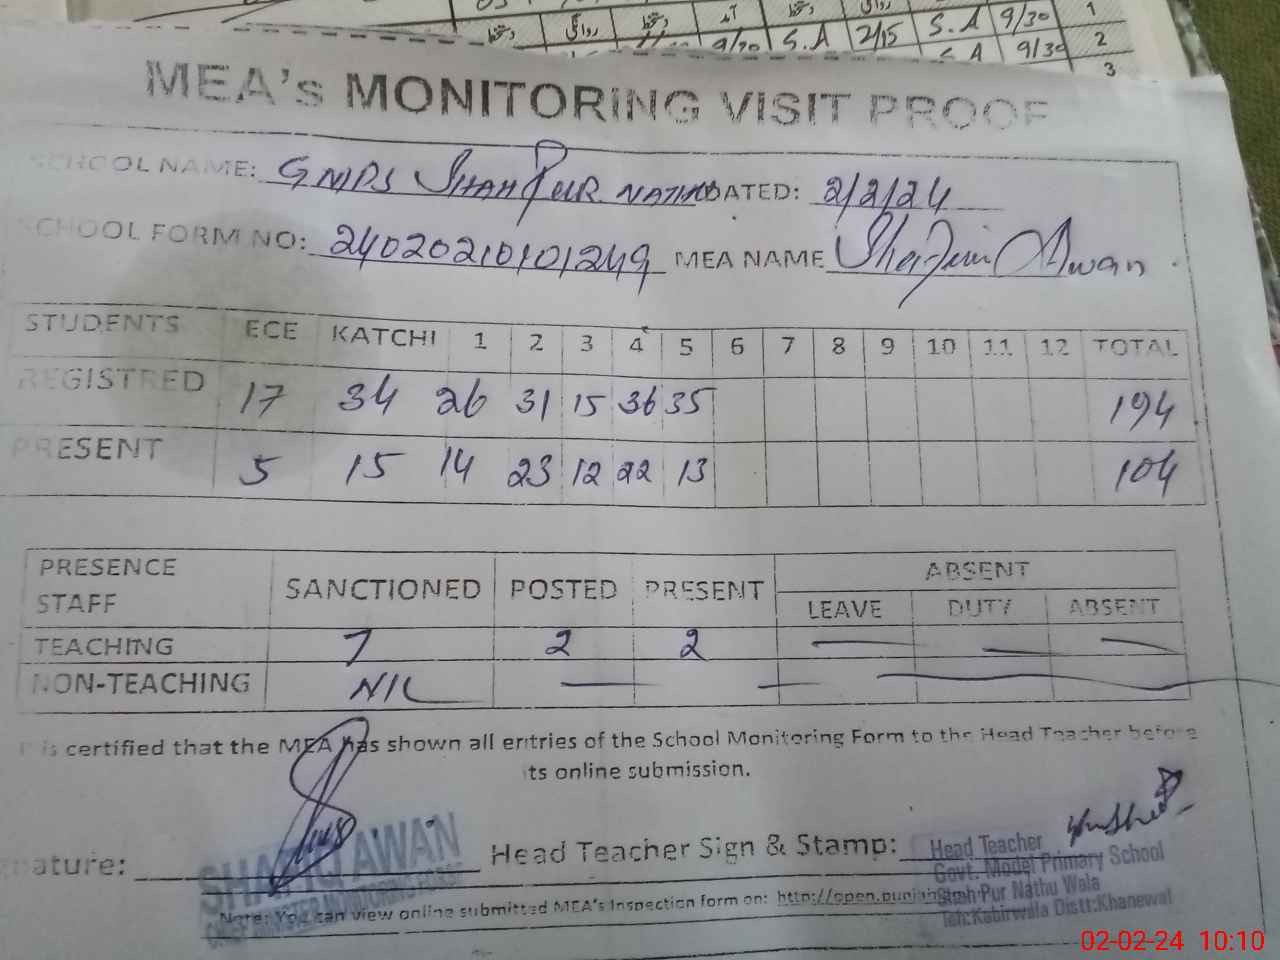 روانگی دستخط آمد دستخط روانگی دستخط
9/30 S.A 2/15 S.A 9/30 1
S.A 9/30 2
3
MEA's MONITORING VISIT PROOF
SCHOOL NAME: GMPS SHAHPUR NATHU DATED: 2/2/24
SCHOOL FORM NO: 24020210101249 MEA NAME Awan
STUDENTS ECE KATCHI 1 2 3 4 5 6 7 8 9 10 11 12 TOTAL
REGISTRED 17 34 26 31 15 36 35 194
PRESENT 5 15 14 23 12 22 13 104
PRESENCE STAFF SANCTIONED POSTED PRESENT ABSENT
LEAVE DUTY ABSENT
TEACHING 7 2 2 — — —
NON-TEACHING NIL — — —
It is certified that the MEA has shown all entries of the School Monitoring Form to the Head Teacher before
its online submission.
Signature: Head Teacher Sign & Stamp:
SHAFIQ AWAN
CHIEF MINISTER MONITORING FORCE
Head Teacher
Govt. Model Primary School
Shah Pur Nathu Wala
Teh:Kabirwala Distt:Khanewal
Note: You can view online submitted MEA's Inspection form on: http://open.punjab
02-02-24 10:10